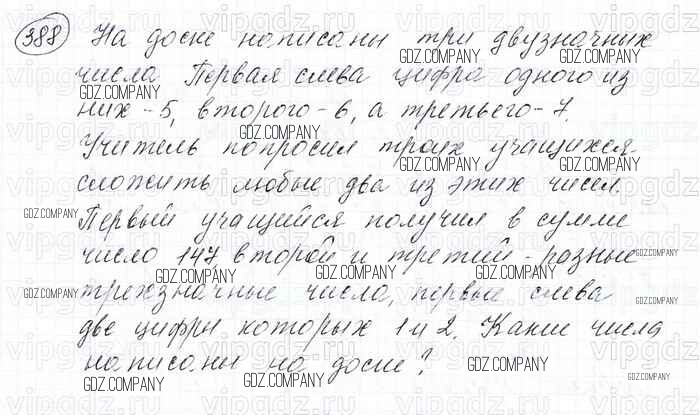 388 На доске написаны три двузначних
числа Первая слева цифра одного из
них - 5, второго - 6, а третьего - 7.
Учитель попросил троих учащихся
сложить любые два из этих чисел.
Первый учащийся получил в сумме
число 147 второй и третий - разные
трехзначные числа, первые слева
две цифры которых 1 и 2. Какие числа
написаны на доске?
GDZ.COMPANY
vipgdz.ru